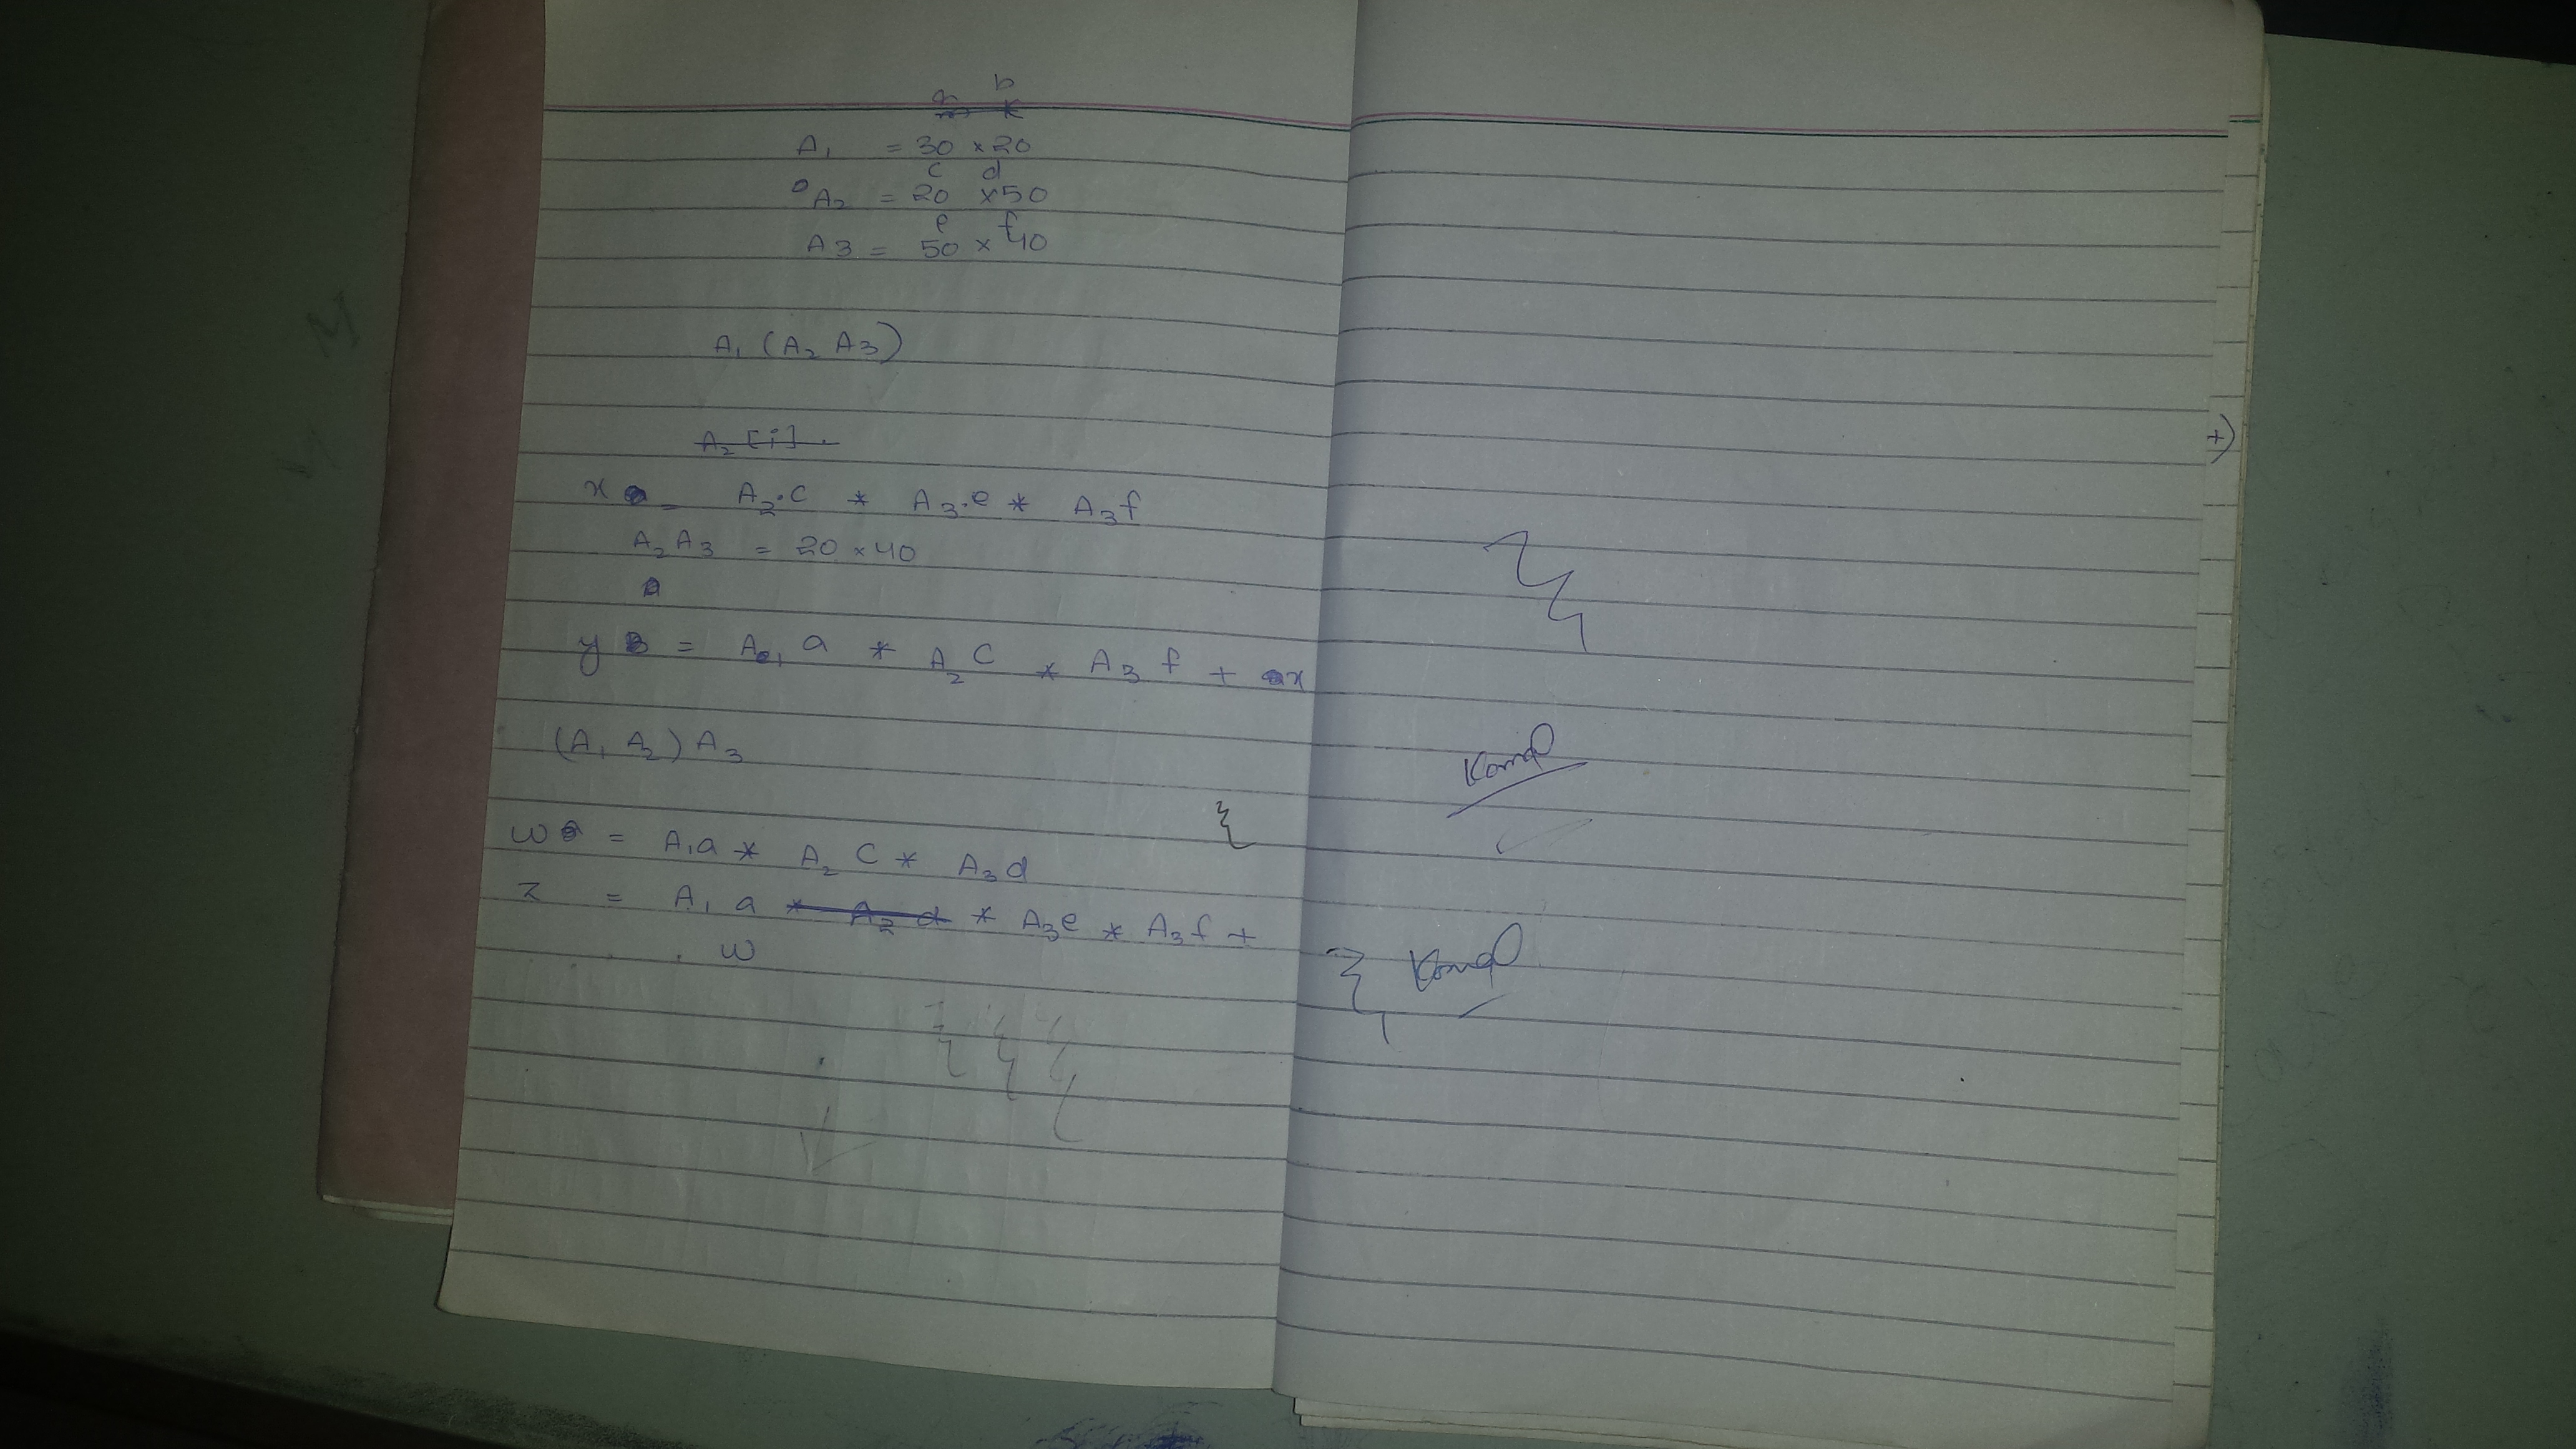 a b
A1 = 30 × 20
c d
A2 = 20 × 50
e f
A3 = 50 × 40
A1 (A2 A3)
A2 [i] .
x = A2.c * A3.e * A3f
A2 A3 = 20 × 40
y = A1 a * A2 C * A3 f + x
(A1 A2) A3
w = A1a * A2 C * A3d
z = A1 a * A2 d * A3e * A3f +
w
Komal
Komal
+)